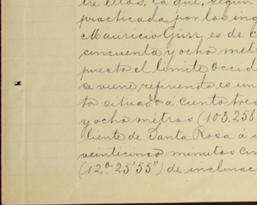 tre ellos, la que, segun
practicada por los ing
Mauricio Gurr, es de c
cincuenta y ocho met
puesto el límite occid
se viene refiriendo es un
to situado á ciento tres
y ocho metros (103.258
liente de Santa Rosa á s
veinticinco minutos cin
(12º 25' 55") de inclinac